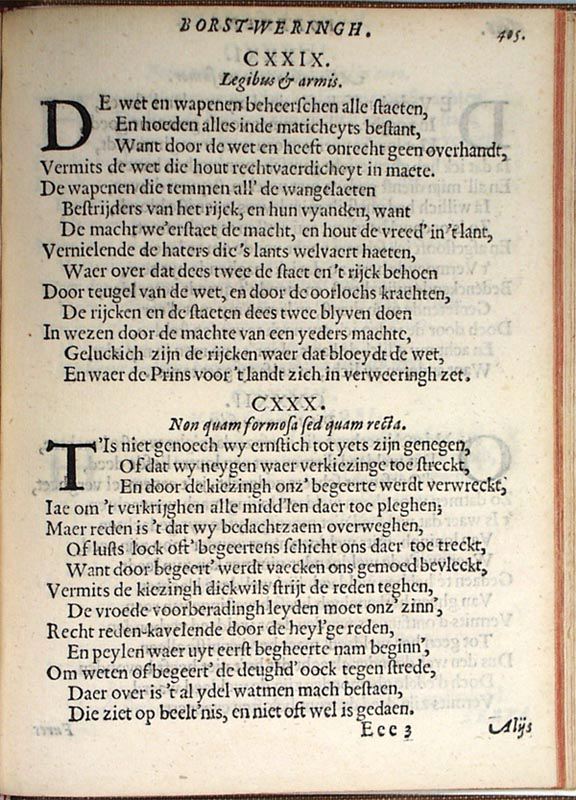 BORST-WERINGH.
405.
CXXIX.
Legibus & armis.
DE wet en wapenen beheerſchen alle ſtaeten,
En hoeden alles inde maticheyts beſtant,
Want door de wet en heeft onrecht geen overhandt,
Vermits de wet die hout rechtvaerdicheyt in maete.
De wapenen die temmen all' de wangelaeten
Beſtrijders van het rijck, en hun vyanden, want
De macht we'erſtaet de macht, en hout de vreed' in 't lant,
Vernielende de haters die 's lants welvaert haeten,
Waer over dat dees twee de ſtaet en 't rijck behoen
Door teugel van de wet, en door de oorlochs krachten,
De rijcken en de ſtaeten dees twee blyven doen
In wezen door de machte van een yeders machte,
Geluckich zijn de rijcken waer dat bloeydt de wet,
En waer de Prins voor 't landt zich in verweeringh zet.
CXXX.
Non quam formoſa ſed quam recta.
T'Is niet genoech wy ernſtich tot yets zijn genegen,
Of dat wy neygen waer verkiezinge toe ſtreckt,
En door de kiezingh onz' begeerte werdt verwreckt,
Iae om 't verkrijghen alle midd'len daer toe pleghen;
Maer reden is 't dat wy bedachtzaem overweghen,
Of luſts lock oft' begeertens ſchicht ons daer toe treckt,
Want door begeert' werdt vaecken ons gemoed bevleckt,
Vermits de kiezingh dickwils ſtrijt de reden teghen,
De vroede voorberadingh leyden moet onz' zinn',
Recht reden-kavelende door de heyl'ge reden,
En peylen waer uyt eerſt begheerte nam beginn',
Om weten of begeert' de deughd' oock tegen ſtrede,
Daer over is 't al ydel watmen mach beſtaen,
Die ziet op beelt'nis, en niet oft wel is gedaen.
Eee 3
Alijs